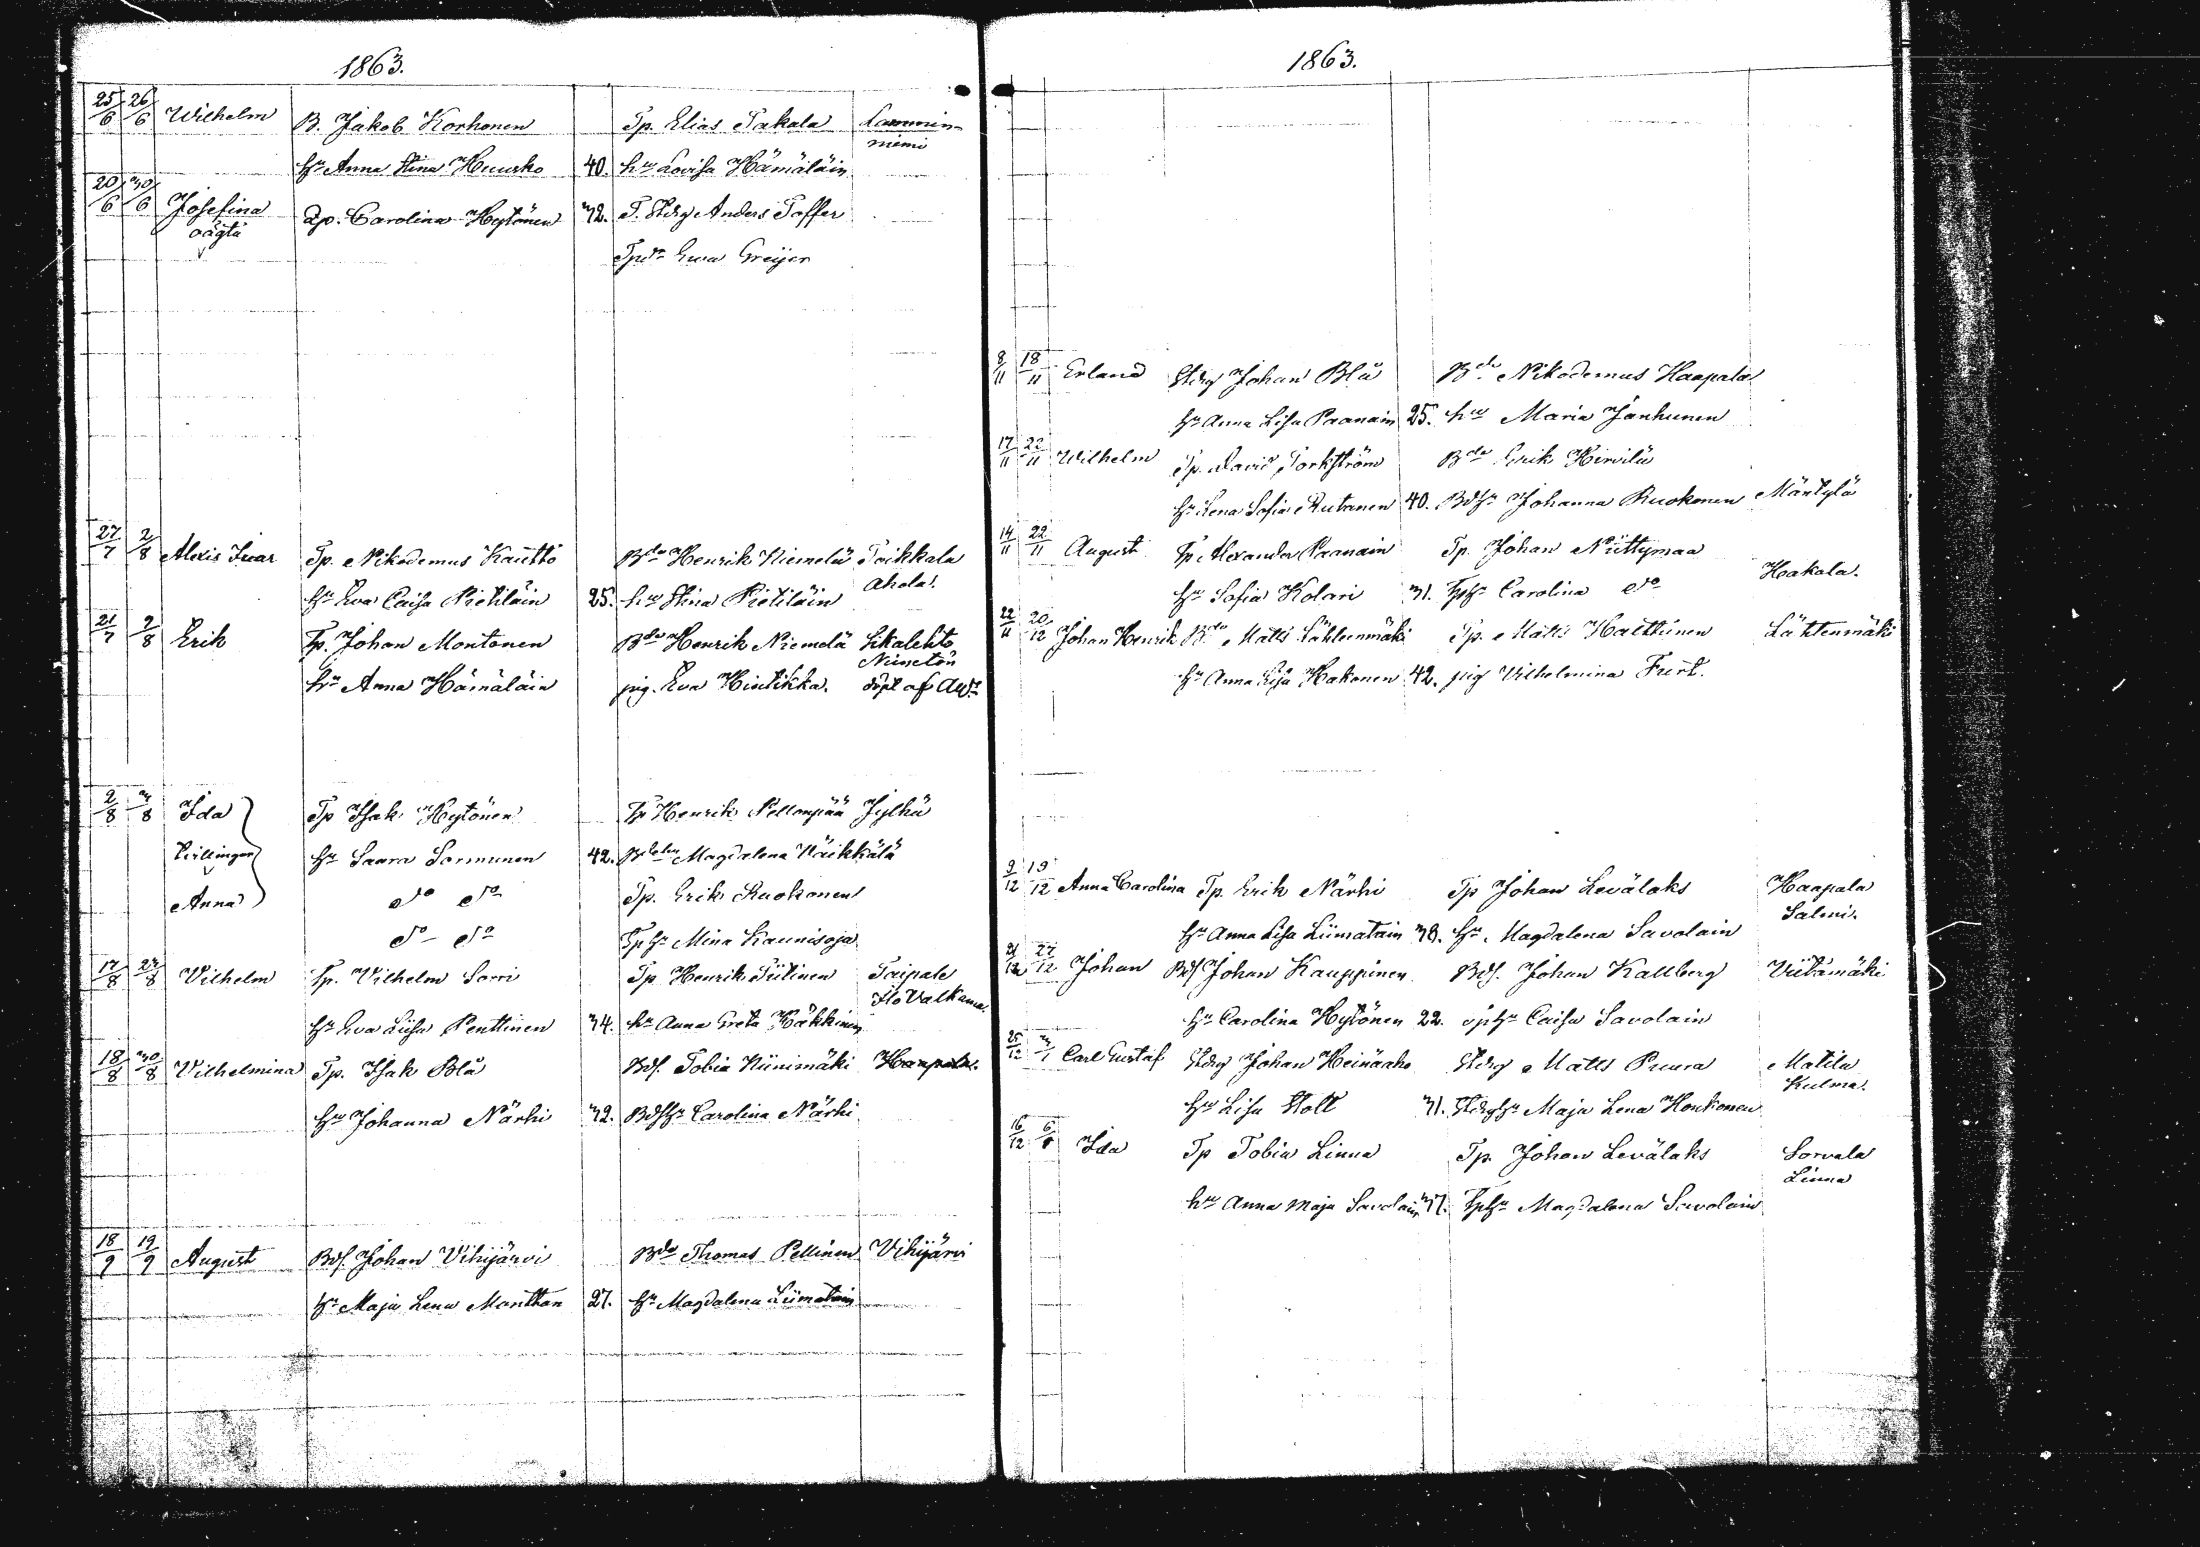 1863.
25/6 26/6 Wilhelm B. Jakob Korhonen Tp. Elias Takala Lammin-
niemi
hu Anna Stina Huusko 40. hu Lovisa Hämäläin
20/6 30/6 Josefina Ip. Carolina Hytönen 32. T. Stdrg Anders Toffer
oägta
Eva Greijer
27/7 2/8 Alexis Ivar Tp. Nikodemus Kautto Bde Henrik Niemelä Toikkala
Ahola.
hu Eva Caisa Pietiläin 25. hu Stina Pietiläin
21/7 2/8 Erik Tp. Johan Montonen Bde Henrik Niemelä Sikalehto
Niinetön
hu Anna Hämäläin pig. Eva Hintikka. döpt af
2/8 3/8 Ida Tp Isak Hytönen Tp Henrik Pellonpää Jylhä
Tvillingar hu Saara Sormunen 42. Magdalena Näikkälä
Anna do do Tp. Erik Ruokonen
do do Tphu Mina Kaunisoja
17/8 27/8 Vilhelm Tp. Vilhelm Sorri Tp Henrik Tiitinen Taipale
Ilo Valkama
hu Eva Liisa Penttinen 34. hu Anna Greta Häkkinen
18/8 30/8 Vilhelmina Tp. Isak Blå Bds. Tobia Niinimäki Haapala.
hu Johanna Närhi 32. Bdshu Carolina Närhi
18/9 19/9 August Bds. Johan Vihijärvi Bde Thomas Pellinen Vihijärvi
hu Maja Lena Manthan 27. hu Magdalena Liimatain
1863.
8/11 18/11 Erland Stdrg Johan Blå Bde Nikodemus Haapala
hu Anna Lisa Paanain 25. hu Maria Janhunen
17/11 22/11 Wilhelm Tp. David Torkström Bde Erik Hirvilä
hu Lena Sofia Rutanen 40. Bdshu Johanna Ruokonen Mäntylä
14/11 22/11 August Tp. Alexander Paanain Tp. Johan Niittymaa
Hakala.
hu Sofia Kolari 31. Tphu Carolina do
22/11 20/12 Johan Henrik Bde Matts Lähteenmäki Tp. Matts Hatttunen Lähtenmäki
hu Anna Lisa Hakonen 42. pig Vilhelmina Furt.
9/12 19/12 Anna Carolina Tp. Erik Närhi Tp Johan Levälaks Haapala
Salmi.
hu Anna Lisa Liimatain 38. hu Magdalena Savolain
21/12 27/12 Johan Bds Johan Kauppinen Bds. Johan Kallberg Viitamäki
hu Carolina Hytönen 22. hu Caisa Savolain
25/12 3/1 Carl Gustaf Stdrg Johan Heinäaho Stdrg Matts Puura Matila
Kulma.
hu Lisa Stolt 31. Stdrghu Maja Lena Honkonen
16/12 6/1 Ida Tp Tobia Linna Tp. Johan Levälaks Sorvala
Linna
hu Anna Maja Savolain 37. Tphu Magdalena Savolain